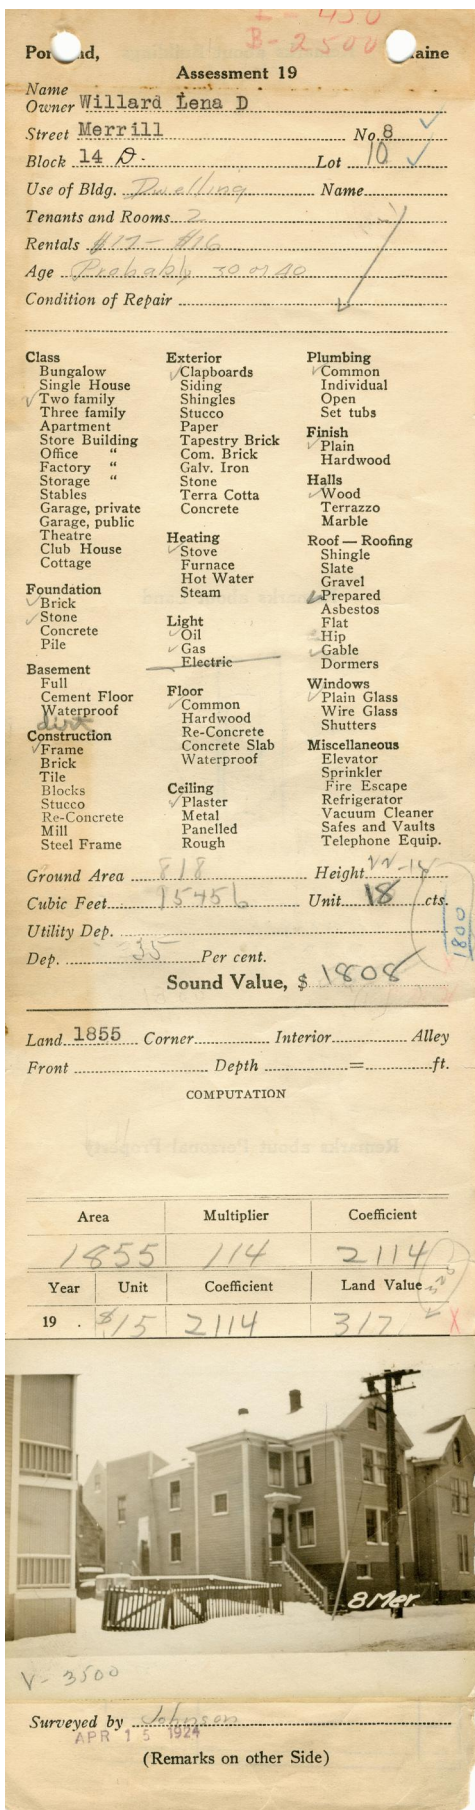 - 450
B- 2500
Portland, Maine
Assessment 19
Name
Owner Willard Lena D
Street Merrill No. 8
Block 14 D. Lot 10
Use of Bldg. Dwelling Name
Tenants and Rooms 2
Rentals $17 - $16
Age Probably 30 or 40
Condition of Repair
Class
Bungalow
Single House
✓ Two family
Three family
Apartment
Store Building
Office "
Factory "
Storage "
Stables
Garage, private
Garage, public
Theatre
Club House
Cottage
Foundation
✓ Brick
✓ Stone
Concrete
Pile
Basement
Full
Cement Floor
Waterproof
dirt
Construction
✓ Frame
Brick
Tile
Blocks
Stucco
Re-Concrete
Mill
Steel Frame
Exterior
✓ Clapboards
Siding
Shingles
Stucco
Paper
Tapestry Brick
Com. Brick
Galv. Iron
Stone
Terra Cotta
Concrete
Heating
✓ Stove
Furnace
Hot Water
Steam
Light
✓ Oil
✓ Gas
Electric
Floor
✓ Common
Hardwood
Re-Concrete
Concrete Slab
Waterproof
Ceiling
✓ Plaster
Metal
Panelled
Rough
Plumbing
✓ Common
Individual
Open
Set tubs
Finish
✓ Plain
Hardwood
Halls
✓ Wood
Terrazzo
Marble
Roof — Roofing
Shingle
Slate
Gravel
✓ Prepared
Asbestos
Flat
Hip
✓ Gable
Dormers
Windows
✓ Plain Glass
Wire Glass
Shutters
Miscellaneous
Elevator
Sprinkler
Fire Escape
Refrigerator
Vacuum Cleaner
Safes and Vaults
Telephone Equip.
Ground Area 818 Height 22-14
Cubic Feet 15456 Unit 18 cts.
1800
Utility Dep.
Dep. 35 Per cent.
Sound Value, $ 1808
Land 1855 Corner Interior Alley
Front Depth = ft.
COMPUTATION
Area Multiplier Coefficient
1855 114 2114
Year Unit Coefficient Land Value
19 . $15 2114 317 X
8 Mer
V- 3500
Surveyed by Johnson
APR 15 1924
(Remarks on other Side)